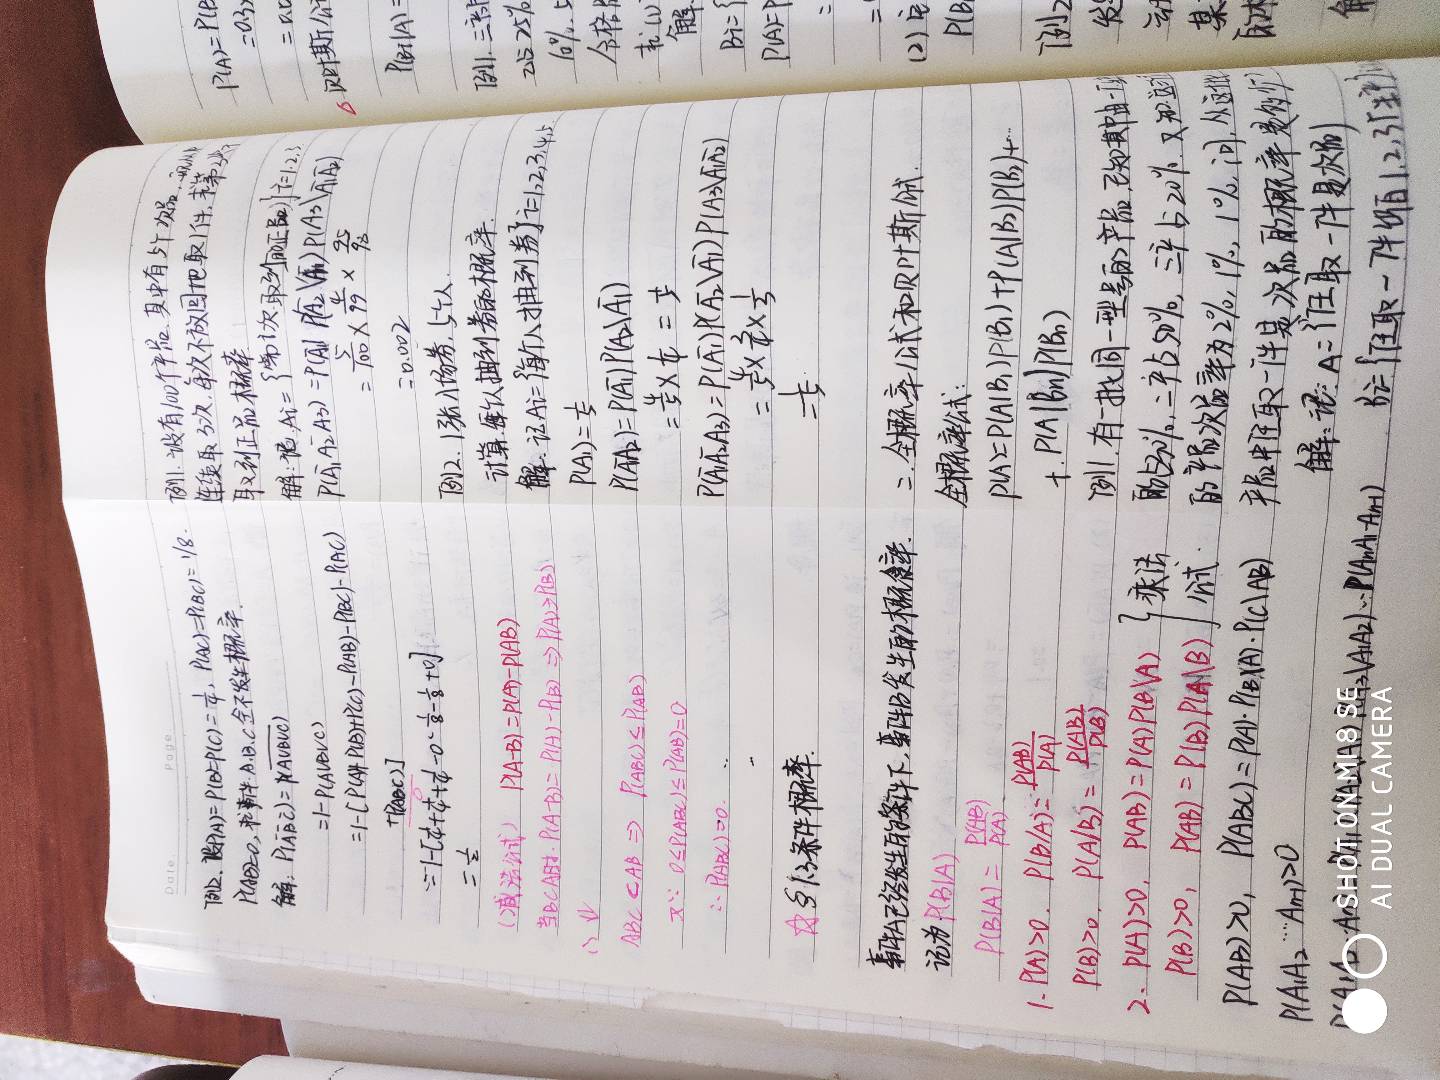 Date. Page.
例2. 设P(A)=P(B)=P(C)=1/4, P(AC)=P(BC)=1/8.
P(AB)=0, 求事件A.B.C全不发生概率.
解: P(A̅B̅C̅)=P(A̅∪̅B̅∪̅C̅)
=1-P(AUBUC)
=1-[P(A)+P(B)+P(C)-P(AB)-P(BC)-P(AC)
+P(ABC)]
0
=1-[1/4+1/4+1/4-0-1/8-1/8+0]
=1/2
(减法公式) P(A-B)=P(A)-P(AB)
当B⊂A时. P(A-B)=P(A)-P(B) ⇒P(A)≥P(B)
⇓
ABC⊂AB ⇒ P(ABC)≤P(AB)
又∵ 0≤P(ABC)≤P(AB)=0
∴P(ABC)=0.
☆ §1.3条件概率.
事件A已经发生的条件下, 事件B发生的概率.
记为P(B|A)
P(B|A)=P(AB)/P(A)
1. P(A)>0. P(B/A)=P(AB)/P(A)
P(B)>0, P(A/B)=P(AB)/P(B)
2. P(A)>0, P(AB)=P(A)P(B\A)
P(B)>0, P(AB)=P(B)P(A\B)
乘法
公式.
P(AB)>0, P(ABC)=P(A)·P(B\A)·P(C\AB)
P(A1A2…An-1)>0
P(A3\A1A2)…P(An\A1…An-1)
例1. 设有100个产品, 其中有5个次品,
连续取3次, 每次不放回地取1件, 求第3次
取到正品概率.
解: 记 Ai={第i次取到的正品} i=1.2.3
P(A̅1A̅2A3)=P(A̅1)P(A̅2\A̅1)P(A3\A̅1A̅2)
=5/100×4/99×95/98
=0.002
例2. 1张入场券, 5个人.
计算. 每个人抽到券的概率.
解: 记Ai={每个人抽到券} i=1,2,3,4,5
P(A1)=1/5
P(A̅1A2)=P(A̅1)P(A2\A̅1)
=4/5×1/4=1/5
P(A̅1A̅2A3)=P(A̅1)P(A̅2\A̅1)P(A3\A̅1A̅2)
=4/5×3/4×1/3
=1/5.
二. 全概率公式和贝叶斯公式.
全概率公式:
P(A)=P(A|B1)P(B1)+P(A|B2)P(B2)+…
+P(A|Bn)P(Bn)
例1. 有一批同一型号的产品, 已知其中由一
的占30%, 二产占50%, 三产占20%. 又知这
的产品次品率为2%, 1%, 1%, 问, 从这批
产品中任取一件是次品的概率是多少?
解: 记: A={任取一件是次品}
Bi={任取一件
P(A)=P(B
=0.3×
=0.0
贝叶斯公
P(Bi|A)=
例1. 三
占25%
10%. 5
合格
求(1)
解.
Bi={
P(A)=P
=
=
(2)
P(B
例2
某
的
SHOT ON MI 8 SE
AI DUAL CAMERA